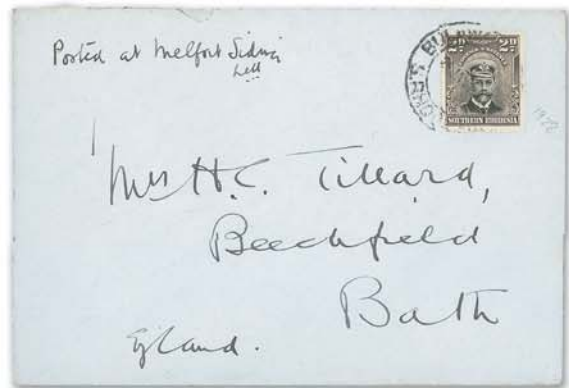 Posted at Melfort Siding
2D 2D
SOUTHERN RHODESIA
Mrs H.C. Tillard,
Beechfield
Bath
England.